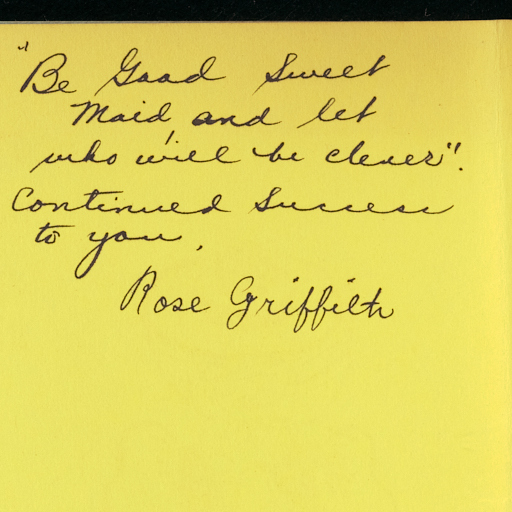 "Be Good Sweet
Maid, and let
who will be clever".
Continued Success
to you.
Rose Griffith